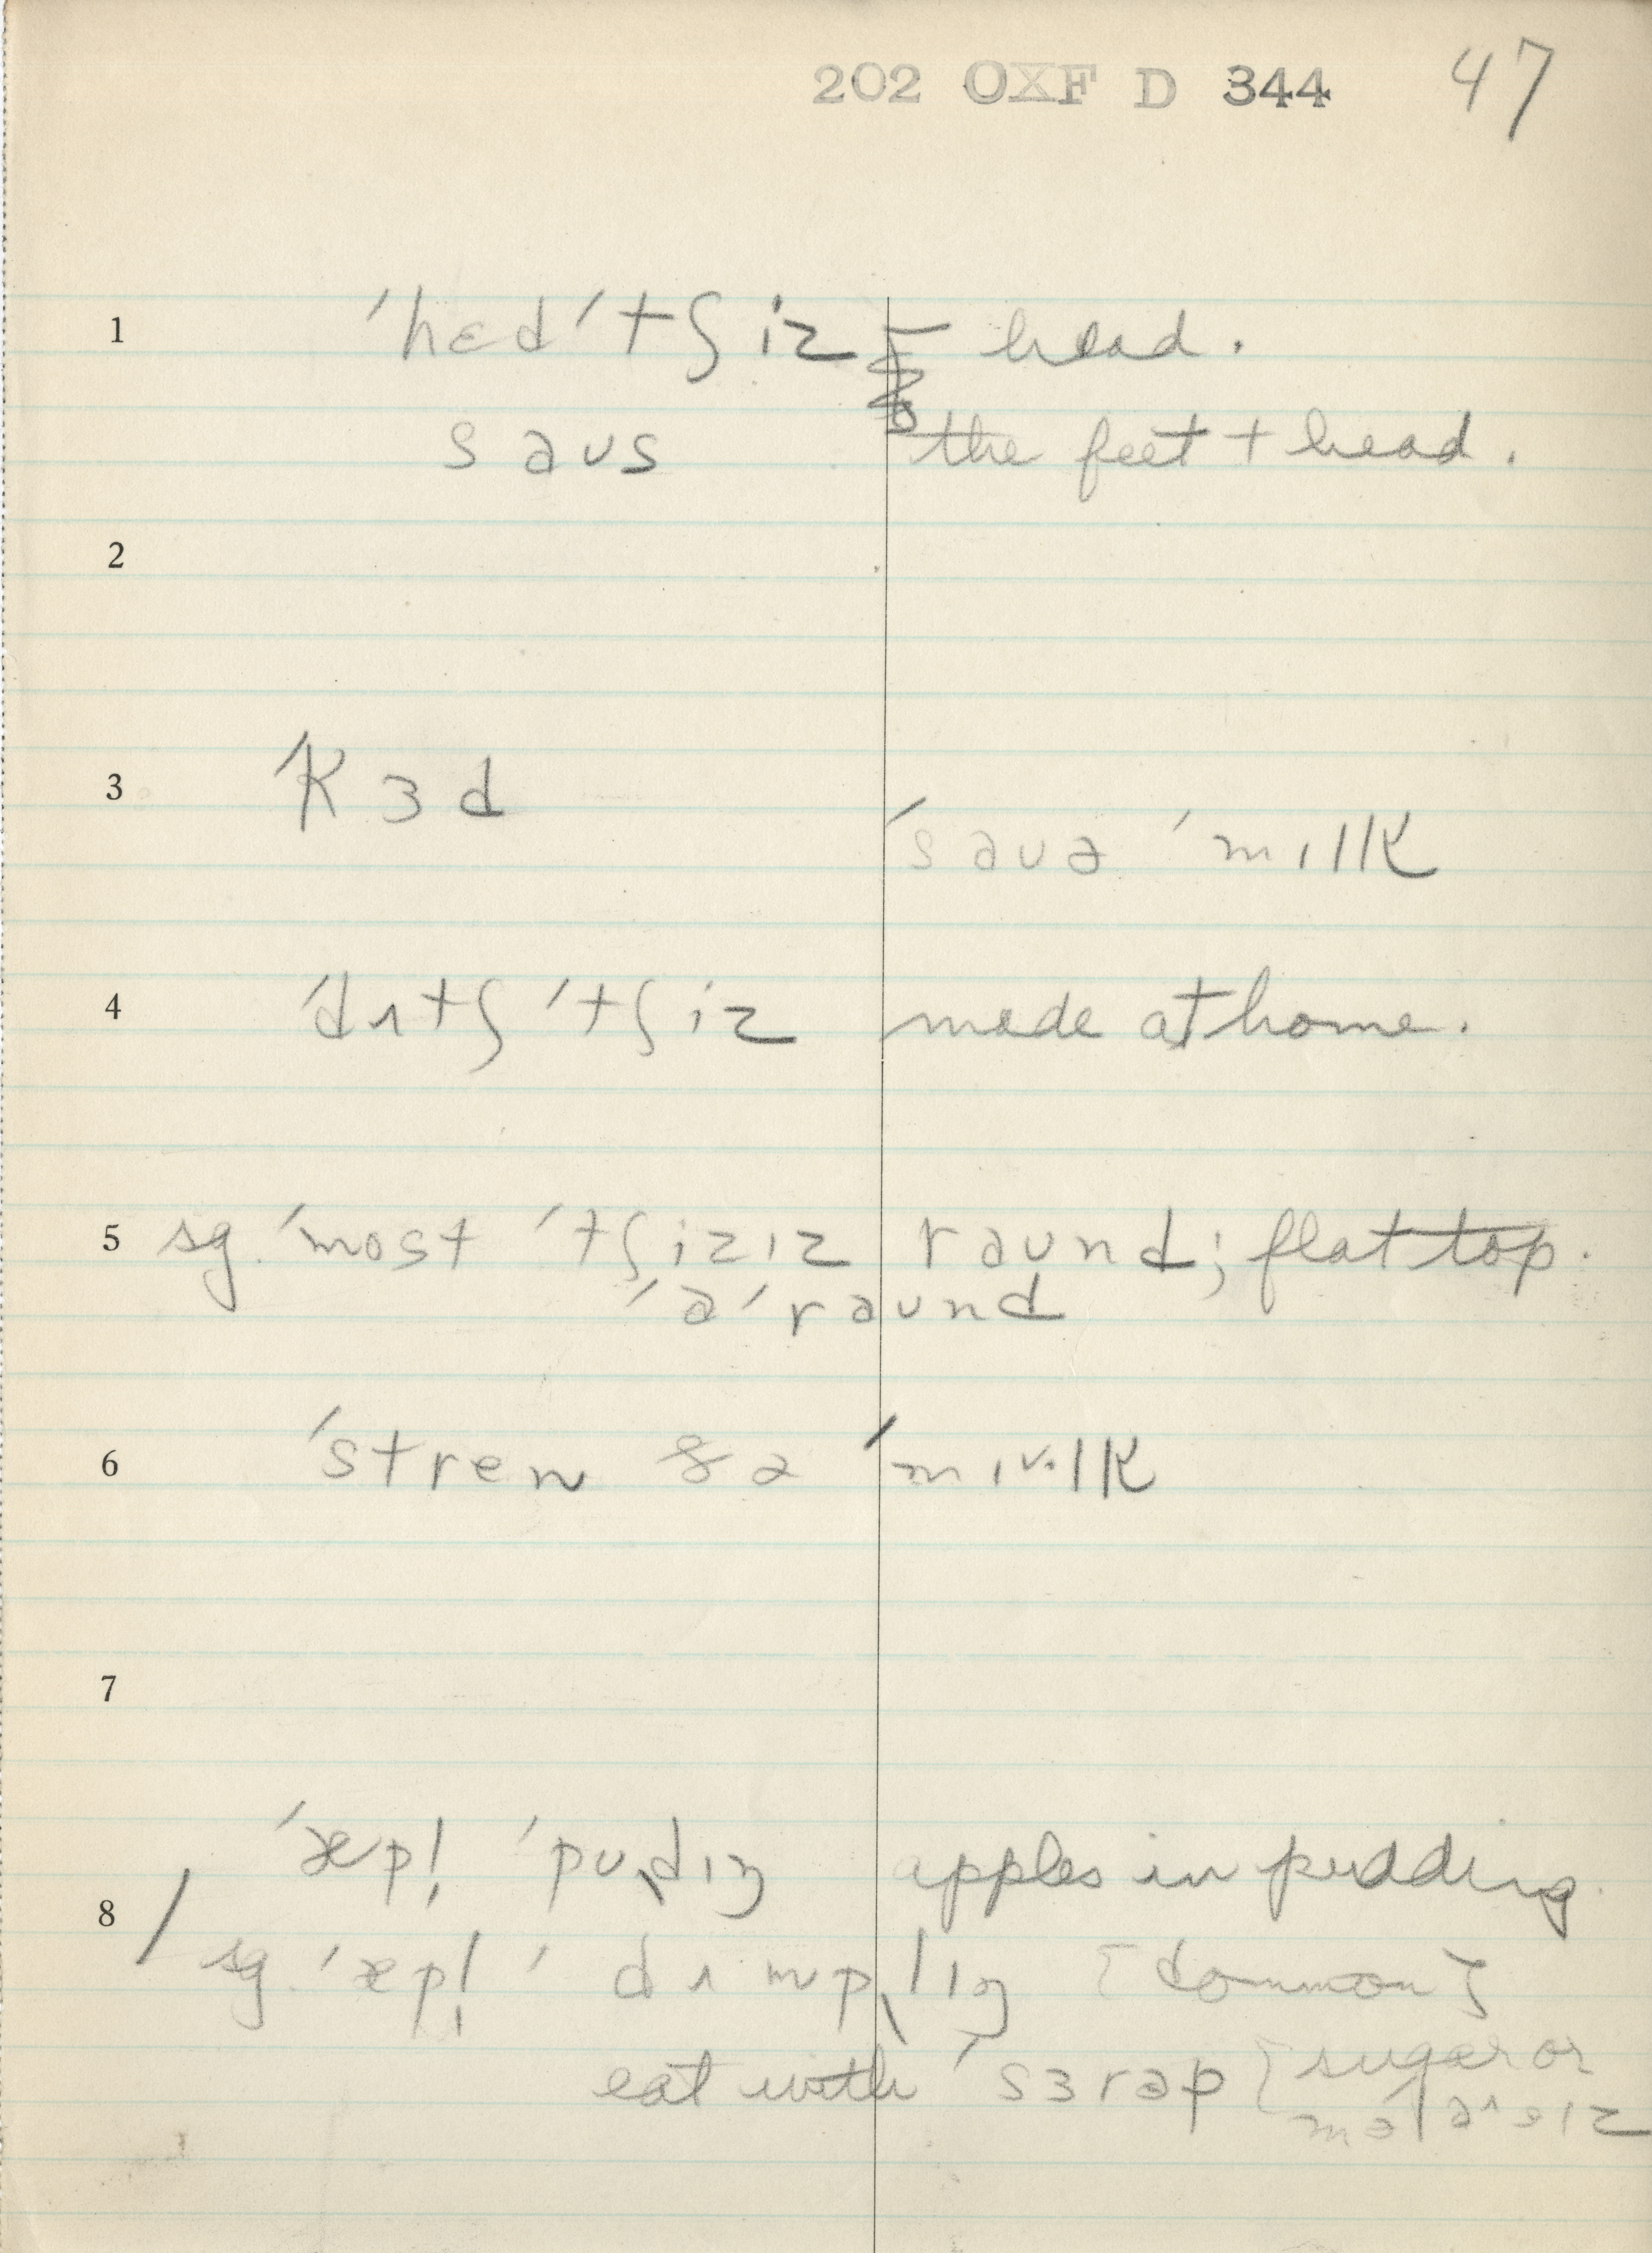 202 OXF D 344 47
1 ˈhɛdˈtʃiz – head.
saus the feet + head.
2
3 ˈkɜd
ˈsauə ˈmɪlk
4 ˈdʌtʃ ˈtʃiz made at home.
5 sg. ˈmost ˈtʃizɪz raund; flat top.
ˈəˈraund
6 ˈstren ðə ˈmɪᵛlk
7
ˈæpl̩ ˈpuˎdɪŋ apples in pudding.
8 / sg. ˈæpl̩ ˈdʌmpˎlɪŋ [common]
eat with ˈsɜrəp [sugar or